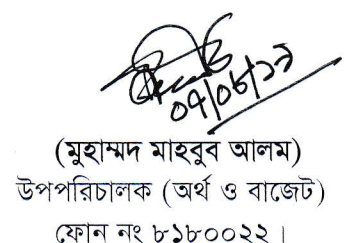 ০৭/০৮/১৯
(মুহাম্মদ মাহবুব আলম)
উপপরিচালক (অর্থ ও বাজেট)
ফোন নং ৮১৮০০২২।